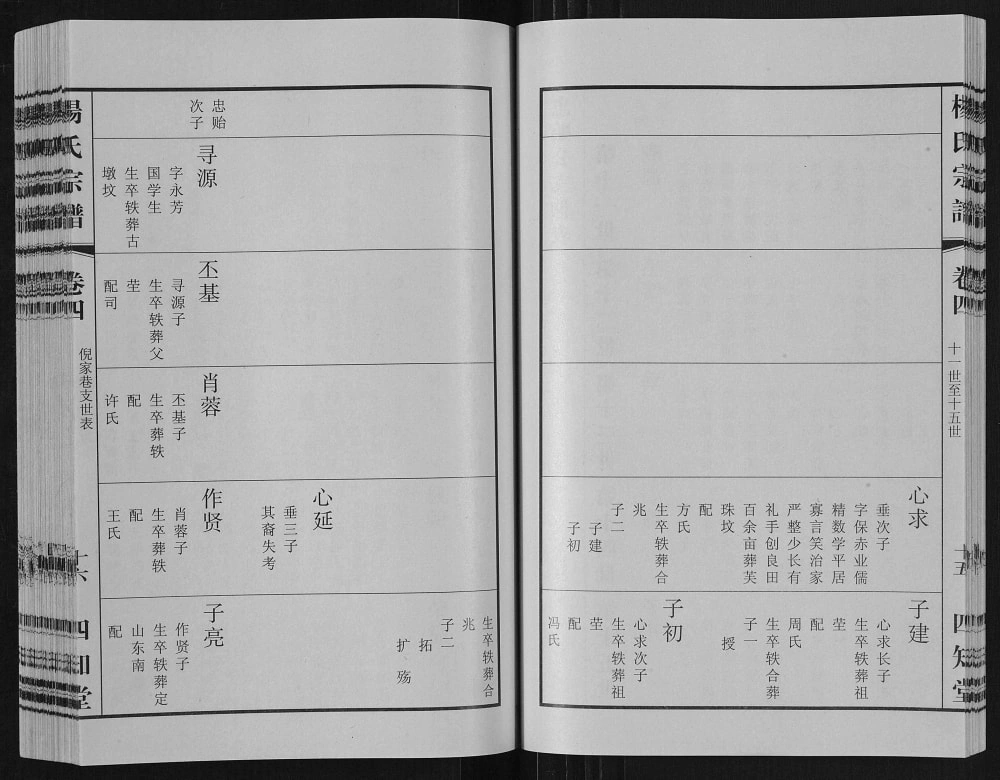 杨氏宗谱
卷四
十一世至十五世
十五
四知堂
心求
垂次子
字保赤业儒
精数学平居
寡言笑治家
严整少长有
礼手创良田
百余亩葬芙
珠坟
配
方氏
生卒轶葬合
兆
子二
子建
子初
子建
心求长子
生卒轶葬祖
茔
配
周氏
生卒轶合葬
子一
授
子初
心求次子
生卒轶葬祖
茔
配
冯氏
忠贻
次子
寻源
字永芳
国学生
生卒轶葬古
墩坟
丕基
寻源子
生卒轶葬父
茔
配司
肖蓉
丕基子
生卒葬轶
配
许氏
心延
垂三子
其裔失考
作贤
肖蓉子
生卒葬轶
配
王氏
生卒轶葬合
兆
子二
拓
扩 殇
子亮
作贤子
生卒轶葬定
山东南
配
杨氏宗谱
卷四
倪家巷支世表
十六
四知堂